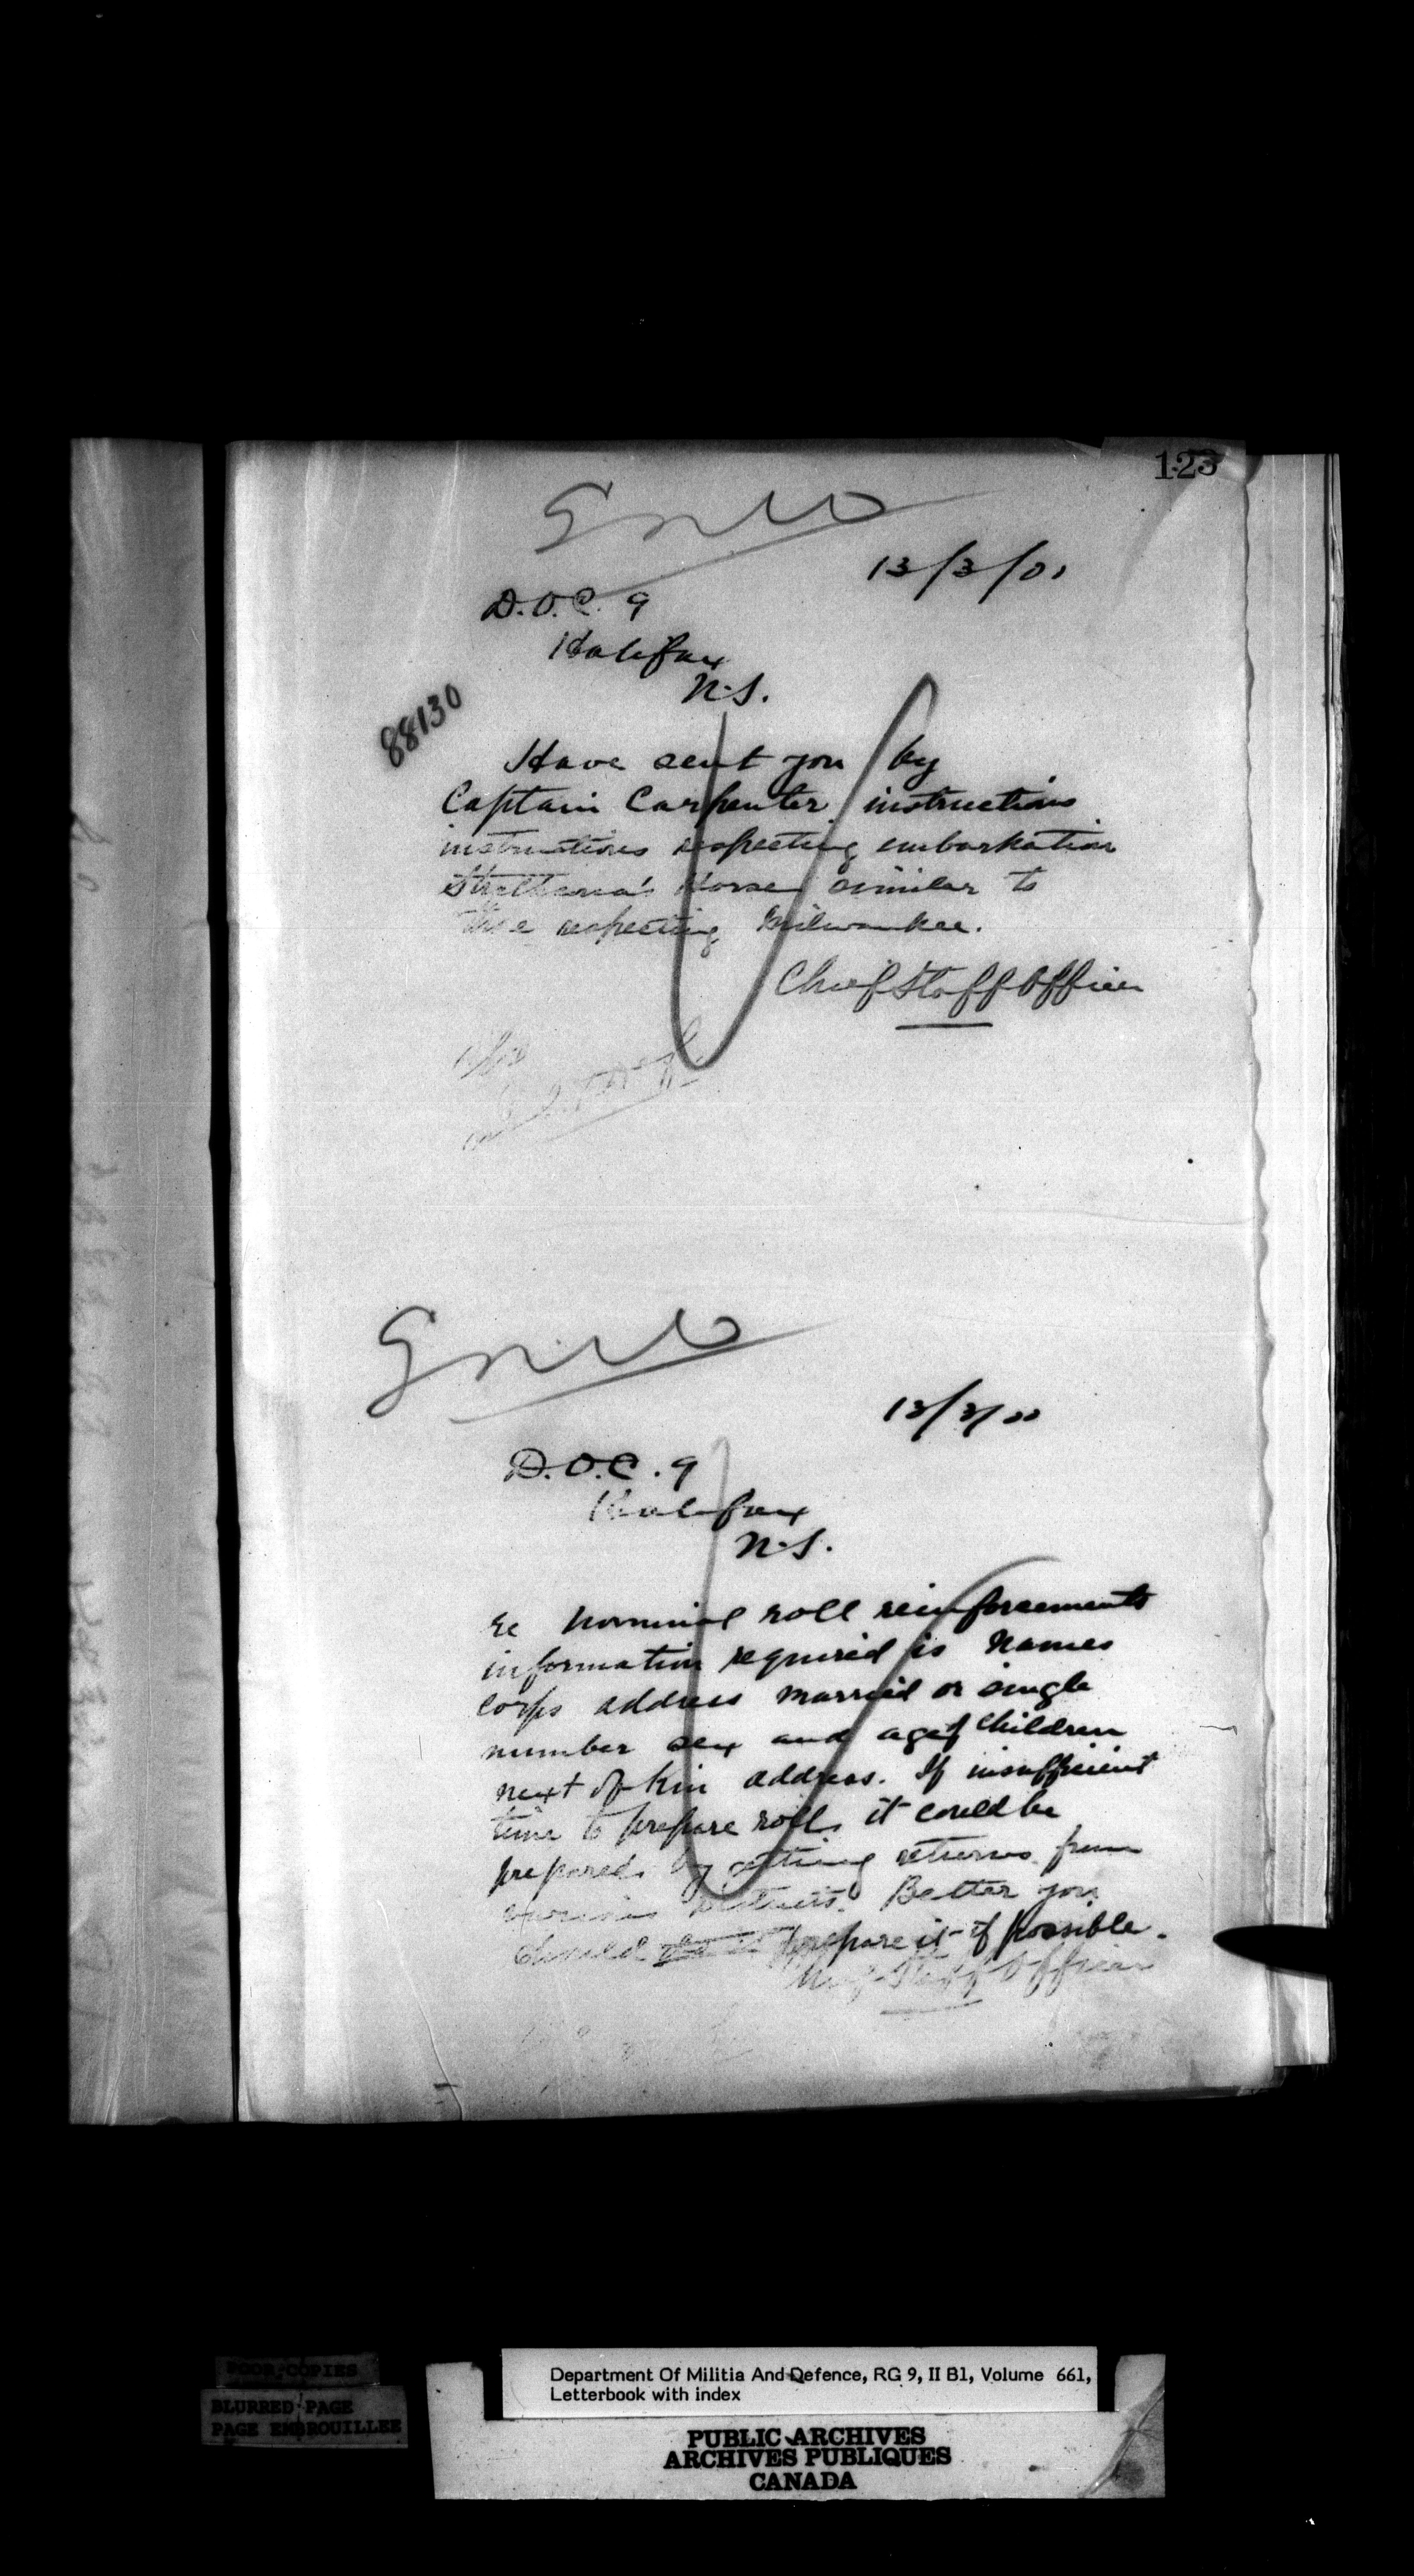 123
13/3/00
D.O.C. 9
Halifax
N.S.
88130
Have sent you by
Captain Carpenter instructions
instructions respecting embarkation
Strathcona's Horse similar to
those respecting Milwaukee.
Chief Staff Officer
13/3/00
D.O.C. 9
Halifax
N.S.
re nominal roll reinforcements
information required is names
corps address married or single
number sex and age of children
next of kin address. If insufficient
time to prepare roll, it could be
prepared by getting returns from
various Districts. Better you
should prepare it if possible.
Chief Staff Officer
POOR COPIES
BLURRED PAGE
PAGE EMBROUILLEE
Department Of Militia And Defence, RG 9, II B1, Volume 661,
Letterbook with index
PUBLIC ARCHIVES
ARCHIVES PUBLIQUES
CANADA